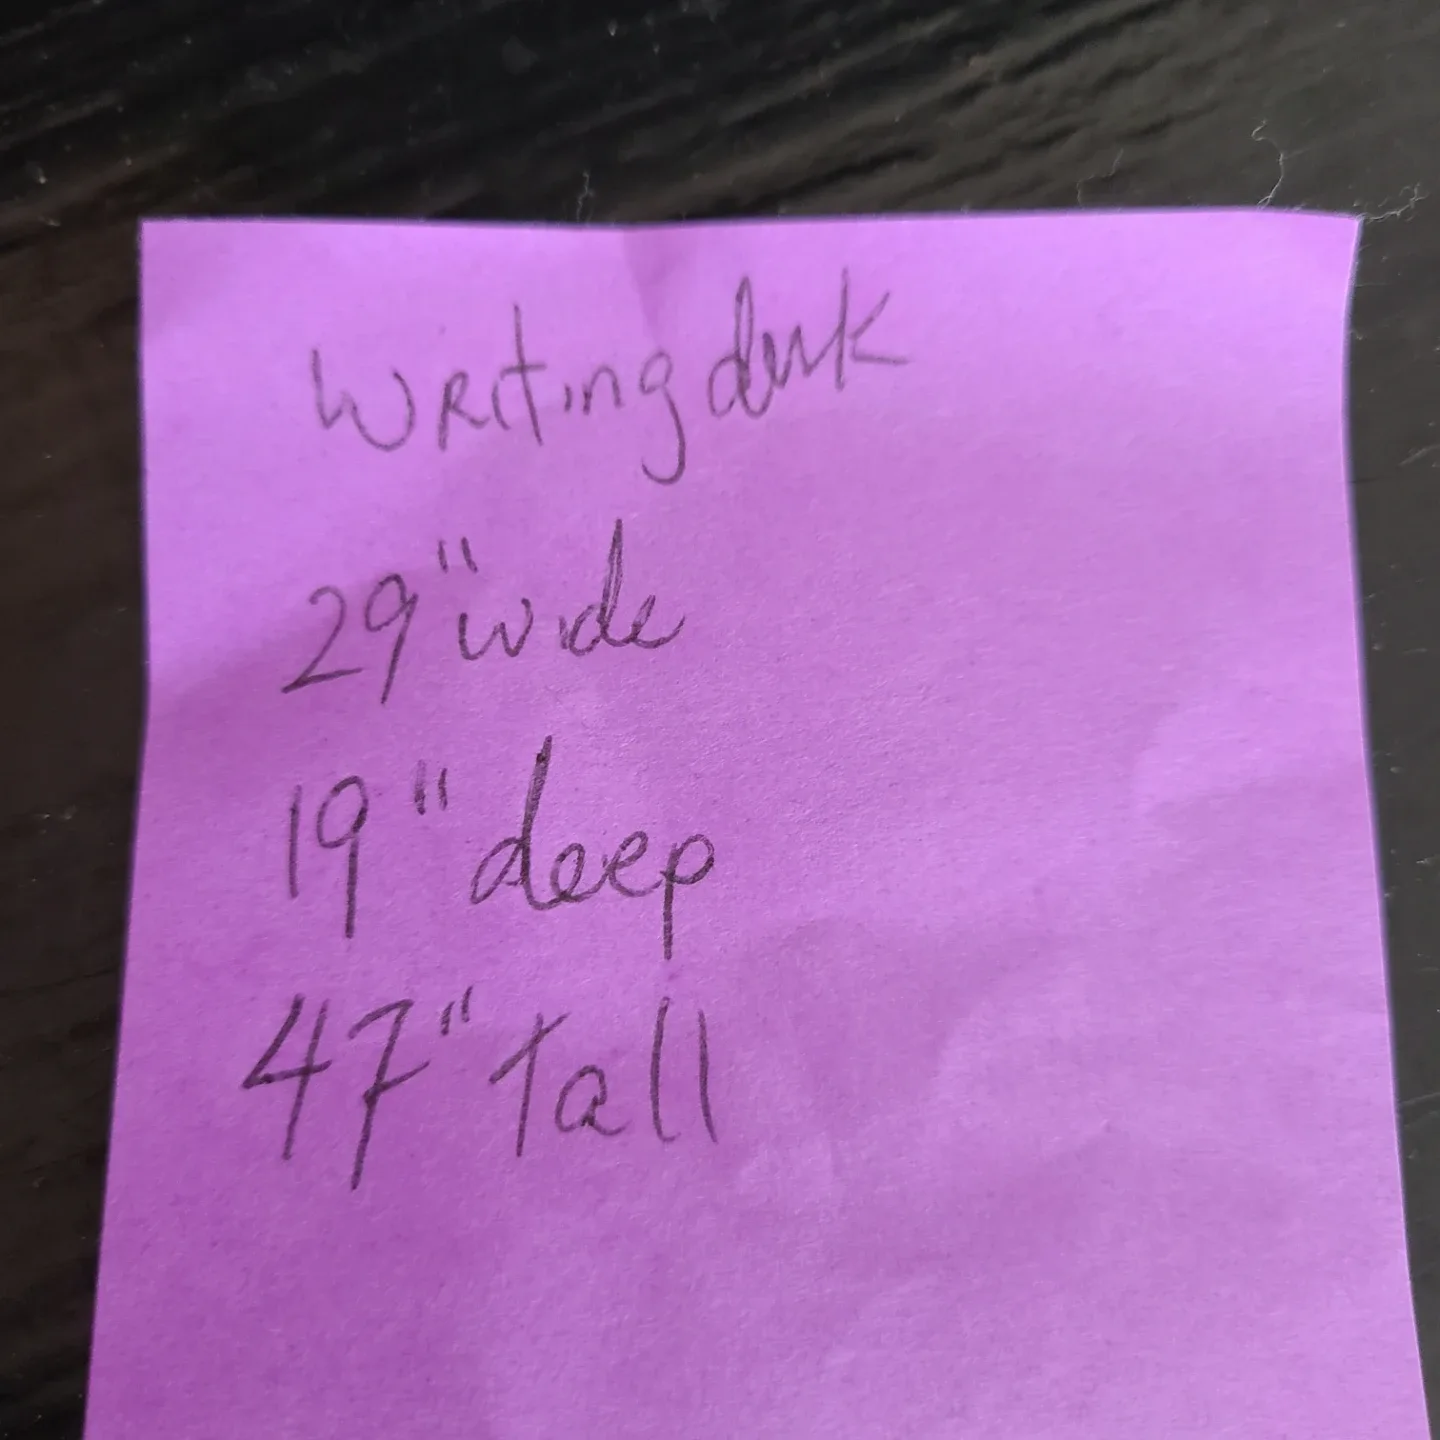 Writing desk
29" wide
19" deep
47" tall